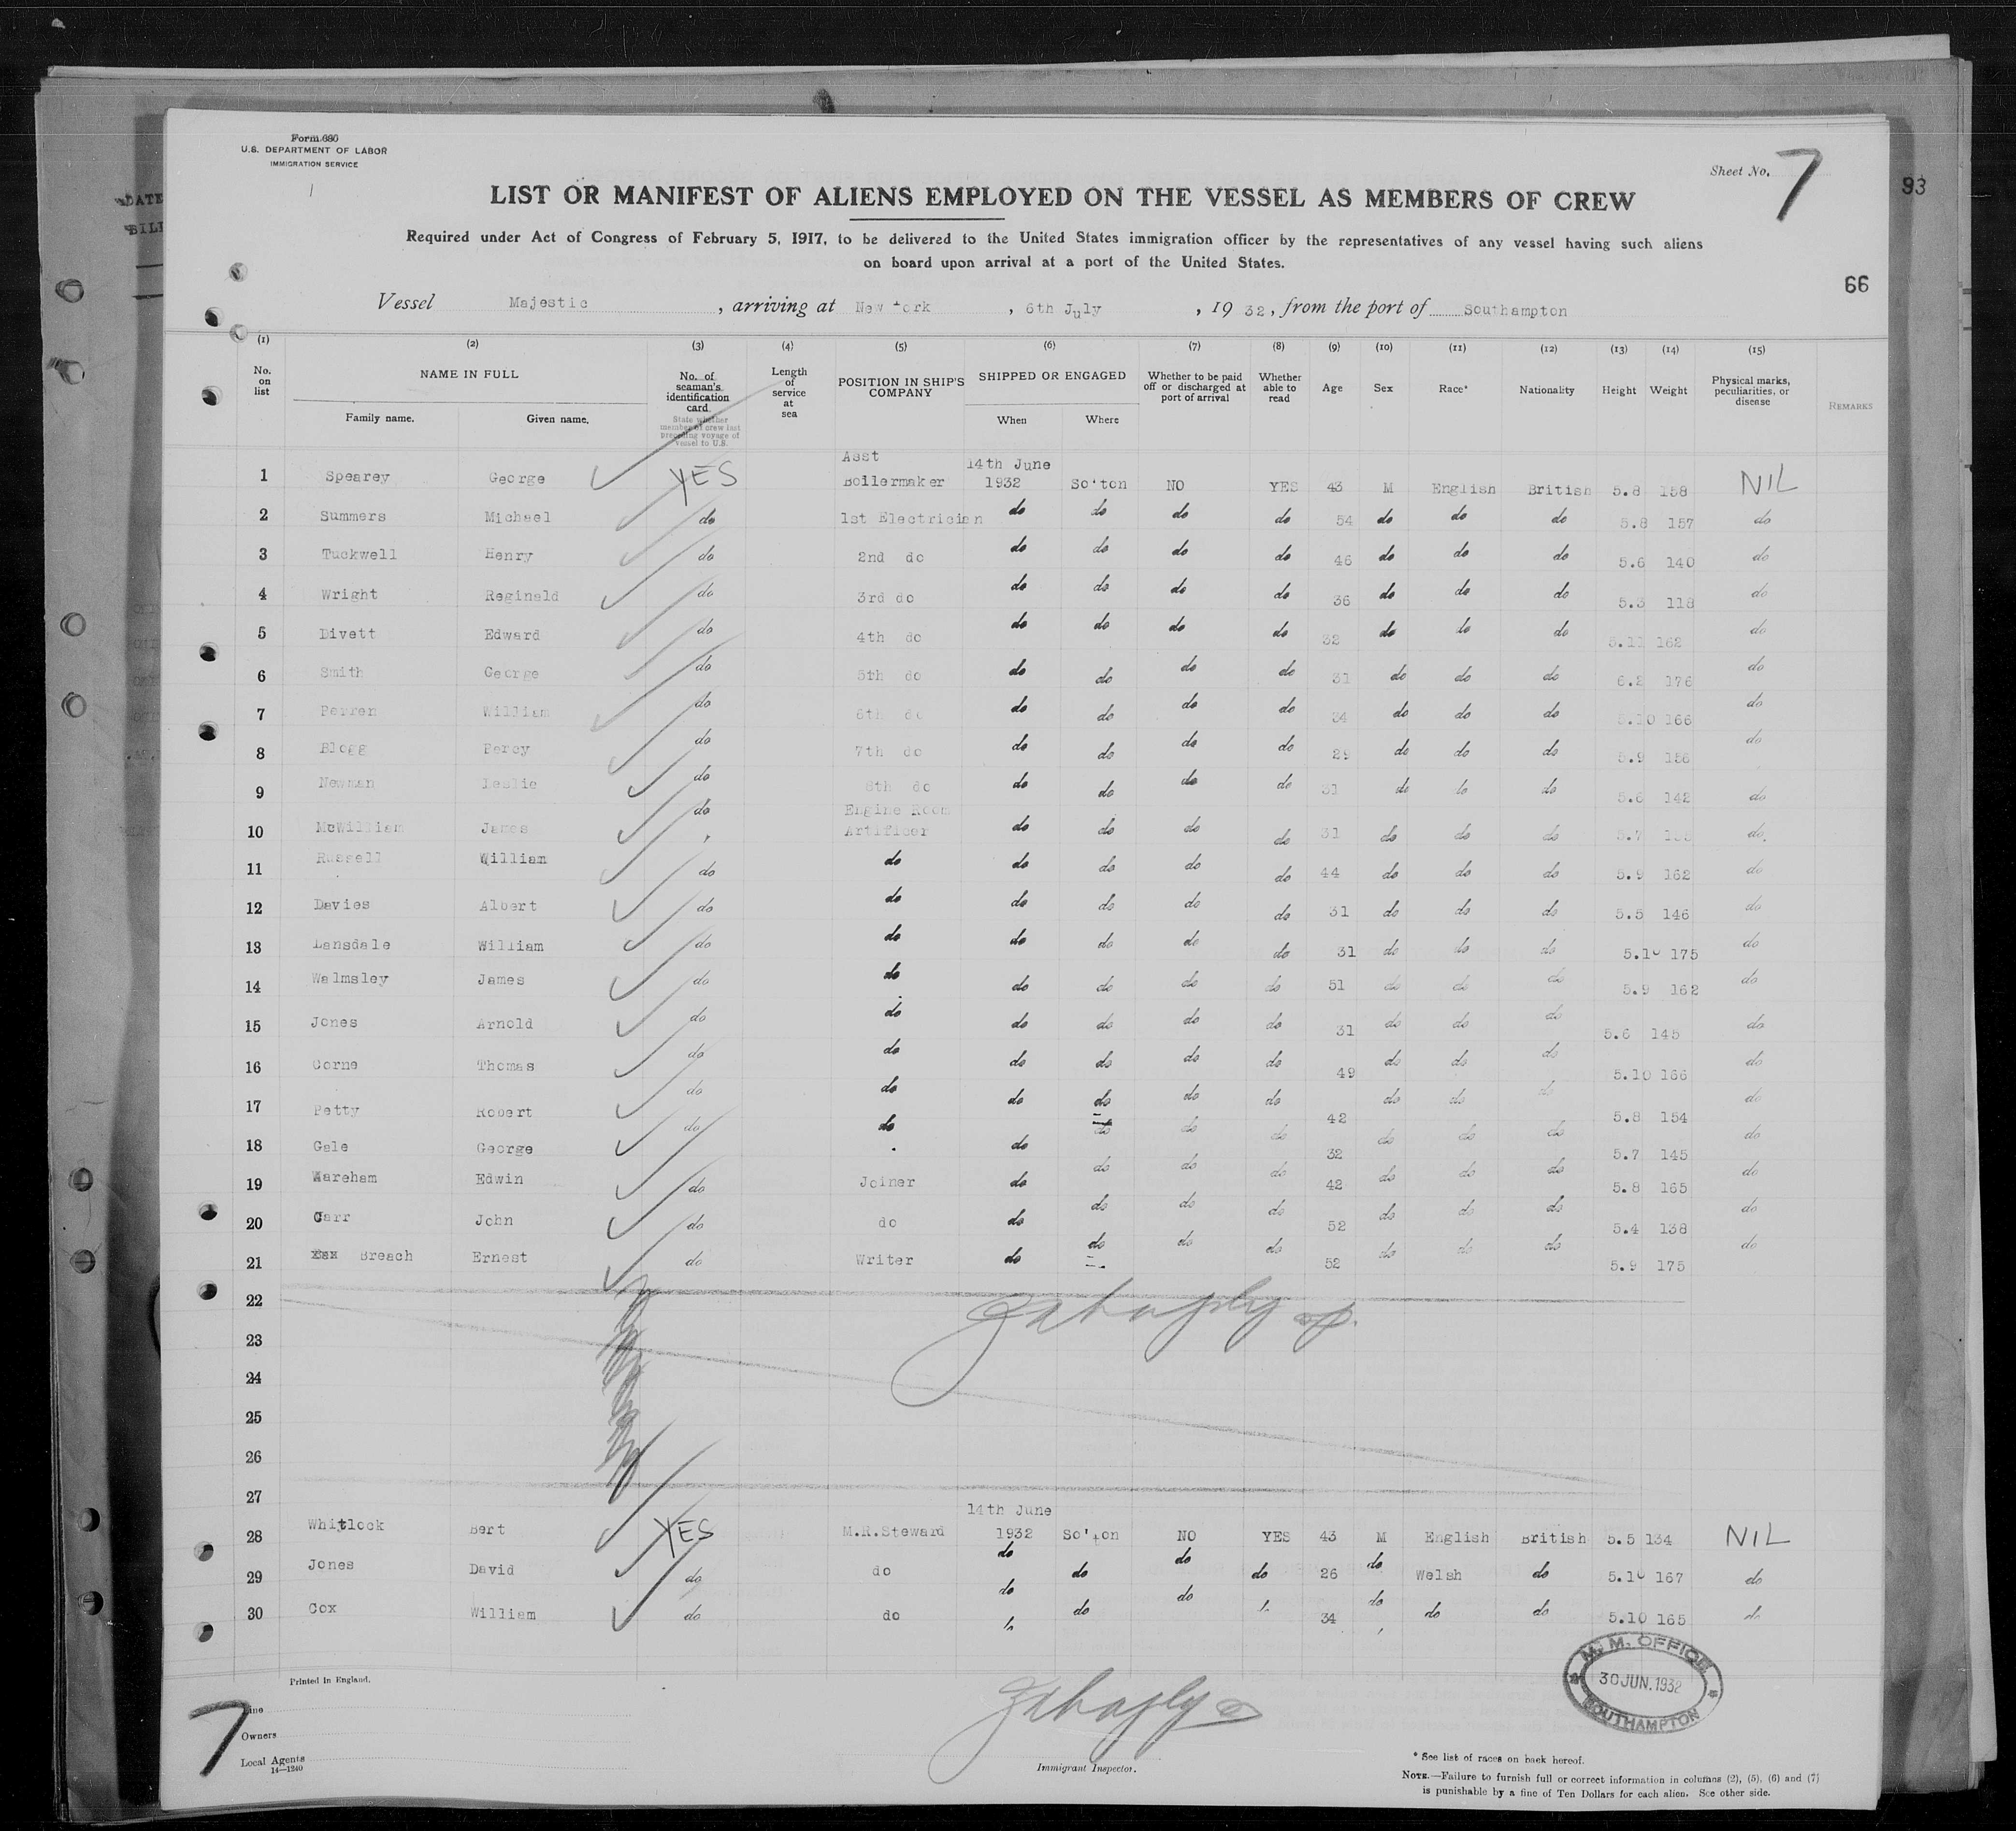 Form 680
U.S. DEPARTMENT OF LABOR
IMMIGRATION SERVICE
Sheet No. 7
93
LIST OR MANIFEST OF ALIENS EMPLOYED ON THE VESSEL AS MEMBERS OF CREW
Required under Act of Congress of February 5, 1917, to be delivered to the United States immigration officer by the representatives of any vessel having such aliens
on board upon arrival at a port of the United States.
66
Vessel Majestic, arriving at New York, 6th July, 1932, from the port of Southampton
(1) (2) (3) (4) (5) (6) (7) (8) (9) (10) (11) (12) (13) (14) (15)
No. on list NAME IN FULL Family name. Given name. No. of seaman's identification card State whether member of crew last preceding voyage of vessel to U.S. Length of service at sea POSITION IN SHIP'S COMPANY SHIPPED OR ENGAGED When Where Whether to be paid off or discharged at port of arrival Whether able to read Age Sex Race* Nationality Height Weight Physical marks, peculiarities, or disease REMARKS
1 Spearey George YES Asst Boilermaker 14th June 1932 So'ton NO YES 43 M English British 5.8 158 NIL
2 Summers Michael do 1st Electrician do do do do 54 do do do 5.8 157 do
3 Tuckwell Henry do 2nd do do do do do 46 do do do 5.6 140 do
4 Wright Reginald do 3rd do do do do do 36 do do do 5.3 118 do
5 Divett Edward do 4th do do do do do 32 do do do 5.11 162 do
6 Smith George do 5th do do do do do 31 do do do 6.2 176 do
7 Perren William do 6th do do do do do 34 do do do 5.10 166 do
8 Blogg Percy do 7th do do do do do 29 do do do 5.9 156 do
9 Newman Leslie do 8th do do do do do 31 do do do 5.6 142 do
10 McWilliam James do Engine Room Artificer do do do do 31 do do do 5.7 do
11 Russell William do do do do do do 44 do do do 5.9 162 do
12 Davies Albert do do do do do do 31 do do do 5.5 146 do
13 Lansdale William do do do do do do 31 do do do 5.10 175 do
14 Walmsley James do do do do do do 51 do do do 5.9 162 do
15 Jones Arnold do do do do do do 31 do do do 5.6 145 do
16 Corne Thomas do do do do do do 49 do do do 5.10 166 do
17 Petty Robert do do do do do do 42 do do do 5.8 154 do
18 Gale George do do do do do do 32 do do do 5.7 145 do
19 Wareham Edwin do Joiner do do do do 42 do do do 5.8 165 do
20 Carr John do do do do do do 52 do do do 5.4 138 do
21 Breach Ernest do Writer do do do do 52 do do do 5.9 175 do
22
23
24
25
26
27
28 Whitlock Bert YES M.R.Steward 14th June 1932 So'ton NO YES 43 M English British 5.5 134 NIL
29 Jones David do do do do do do 26 do Welsh do 5.10 167 do
30 Cox William do do do do do do 34 do do do 5.10 165 do
M. M. OFFICE
30 JUN. 1932
SOUTHAMPTON
Printed in England.
7
Line
Owners
Local Agents
14—1240
Immigrant Inspector.
* See list of races on back hereof.
NOTE.—Failure to furnish full or correct information in columns (2), (5), (6) and (7)
is punishable by a fine of Ten Dollars for each alien. See other side.